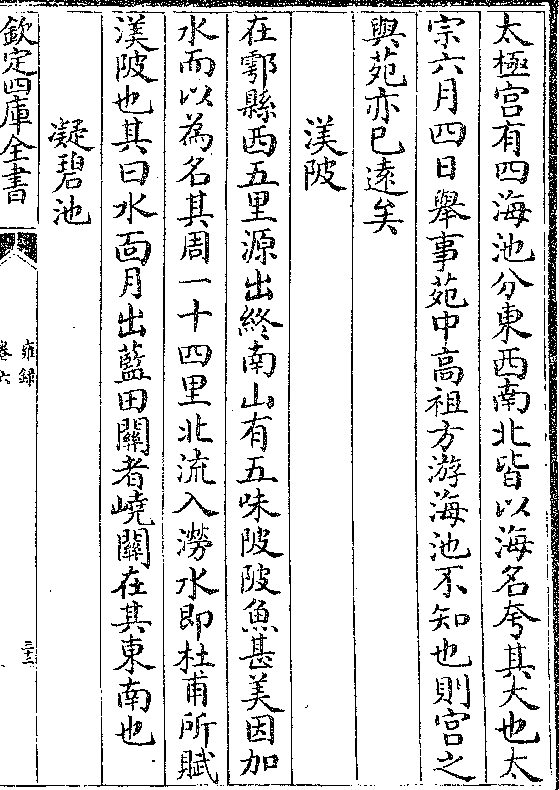 太極宫有四海池分東西南北皆以海名夸其大也太
宗六月四日舉事苑中高祖方游海池不知也則宫之
與苑亦已遠矣
渼陂
在鄠縣西五里源出終南山有五味陂陂魚甚美因加
水而以為名其周一十四里北流入澇水即杜甫所賦
渼陂也其曰水面月出藍田關者嶢關在其東南也
凝碧池
欽定四庫全書
雍録
卷六
三十二